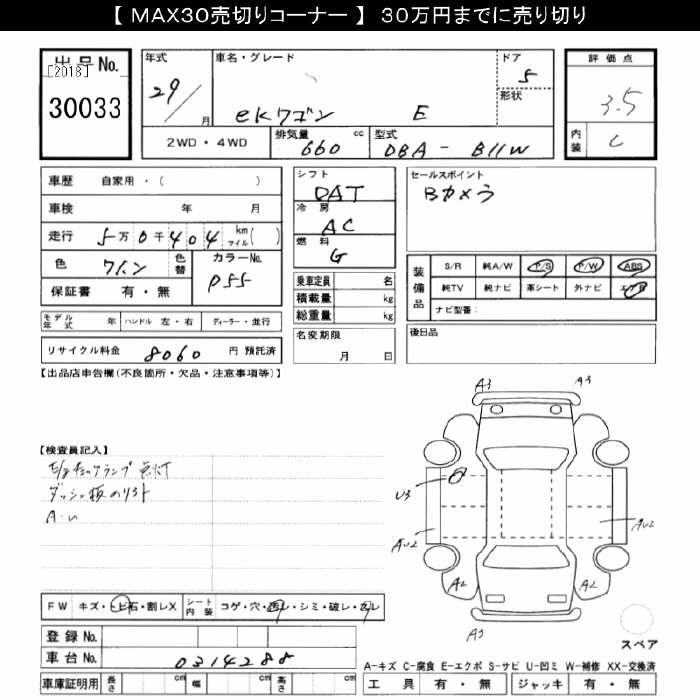 【 MAX30売切りコーナー 】 30万円までに売り切り
出品No.
[2018]
30033
年式
29/
月
車名・グレード
eKワゴン E
ドア
5
形状
2WD・4WD
排気量 cc
660
型式
DBA - B11W
評価点
3.5
内装
C
車歴 自家用・( )
車検 年 月
走行 5万0千404 km マイル( )
色 ワイン 色替
カラーNo.
P55
保証書 有・無
モデル年式 年 ハンドル 左・右 ディーラー・並行
リサイクル料金 8060 円 預託済
シフト
DAT
冷房
AC
燃料
G
乗車定員 名
積載量 kg
総重量 kg
名変期限
月 日
セールスポイント
Bカメラ
装備品
S/R 純A/W P/S P/W ABS
純TV 純ナビ 革シート 外ナビ エアB
ナビ型番:
後日品
【出品店申告欄(不良箇所・欠品・注意事項等)】
【検査員記入】
E/gチェックランプ 点灯
ダッシュ板
A.U
A3 A3
U3
AU2 AU2
A2 A2
A3
FW キズ・ヒビ石・割レX
シート内装 コゲ・穴・切レ・シミ・破レ・汚レ
登録No.
車台No. 0314288
車庫証明用 長さ cm 幅 cm 高さ cm
スペア
A-キズ C-腐食 E-エクボ S-サビ U-凹ミ W-補修 XX-交換済
工具 有・無 ジャッキ 有・無